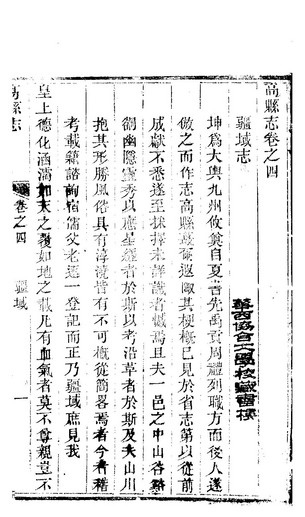 高縣志卷之四
疆域志
坤爲大輿九州攸奠自夏書先禹貢周禮列職方而後人遂
倣之而作志高縣
遐陬其梗槪已見於省志第以從前
成獻不悉遂至採擇未詳識者憾焉且夫一邑之中山谷
幽隱靈秀以應星經者於斯以考沿革者於斯及夫山川
抱其形勝風俗具有淳澆皆有不可槪從簡畧焉者今者稽
考載籍諮詢宿儒父老逐一登記而正乃疆域庶見我
皇上德化涵濡如天之覆如地之載凡有血氣者莫不尊親豈不
高縣志
卷之四
疆域
一
華西協合大學校藏書樓